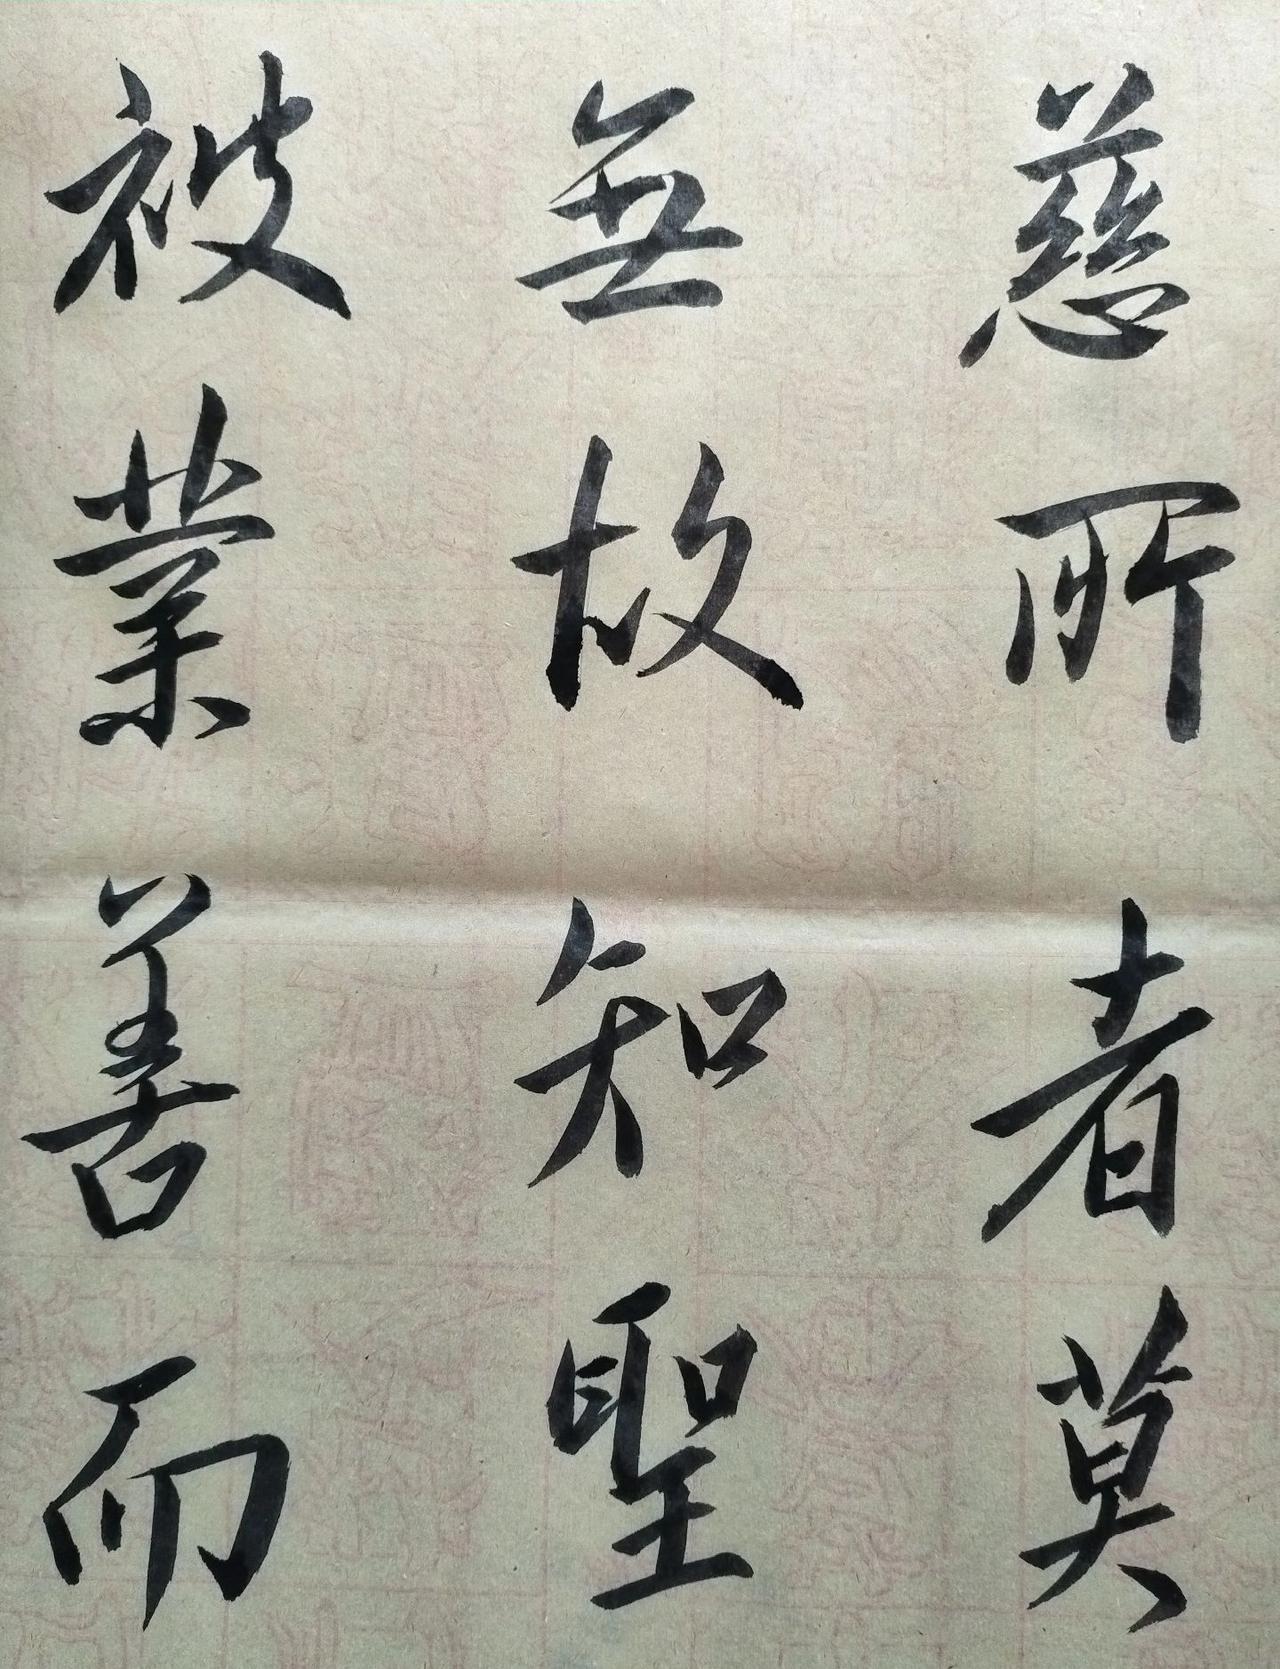 慈所者莫
無故知聖
被業善而